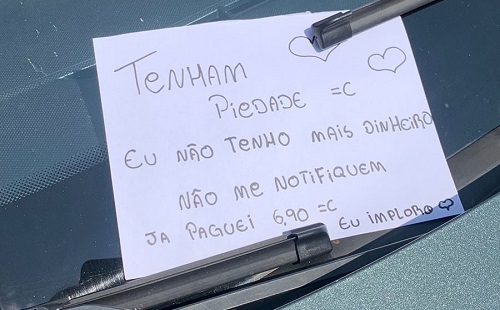 TENHAM
PIEDADE =C
EU NÃO TENHO MAIS DINHEIRO
NÃO ME NOTIFIQUEM
JA PAGUEI 6,90 =C
EU IMPLORO